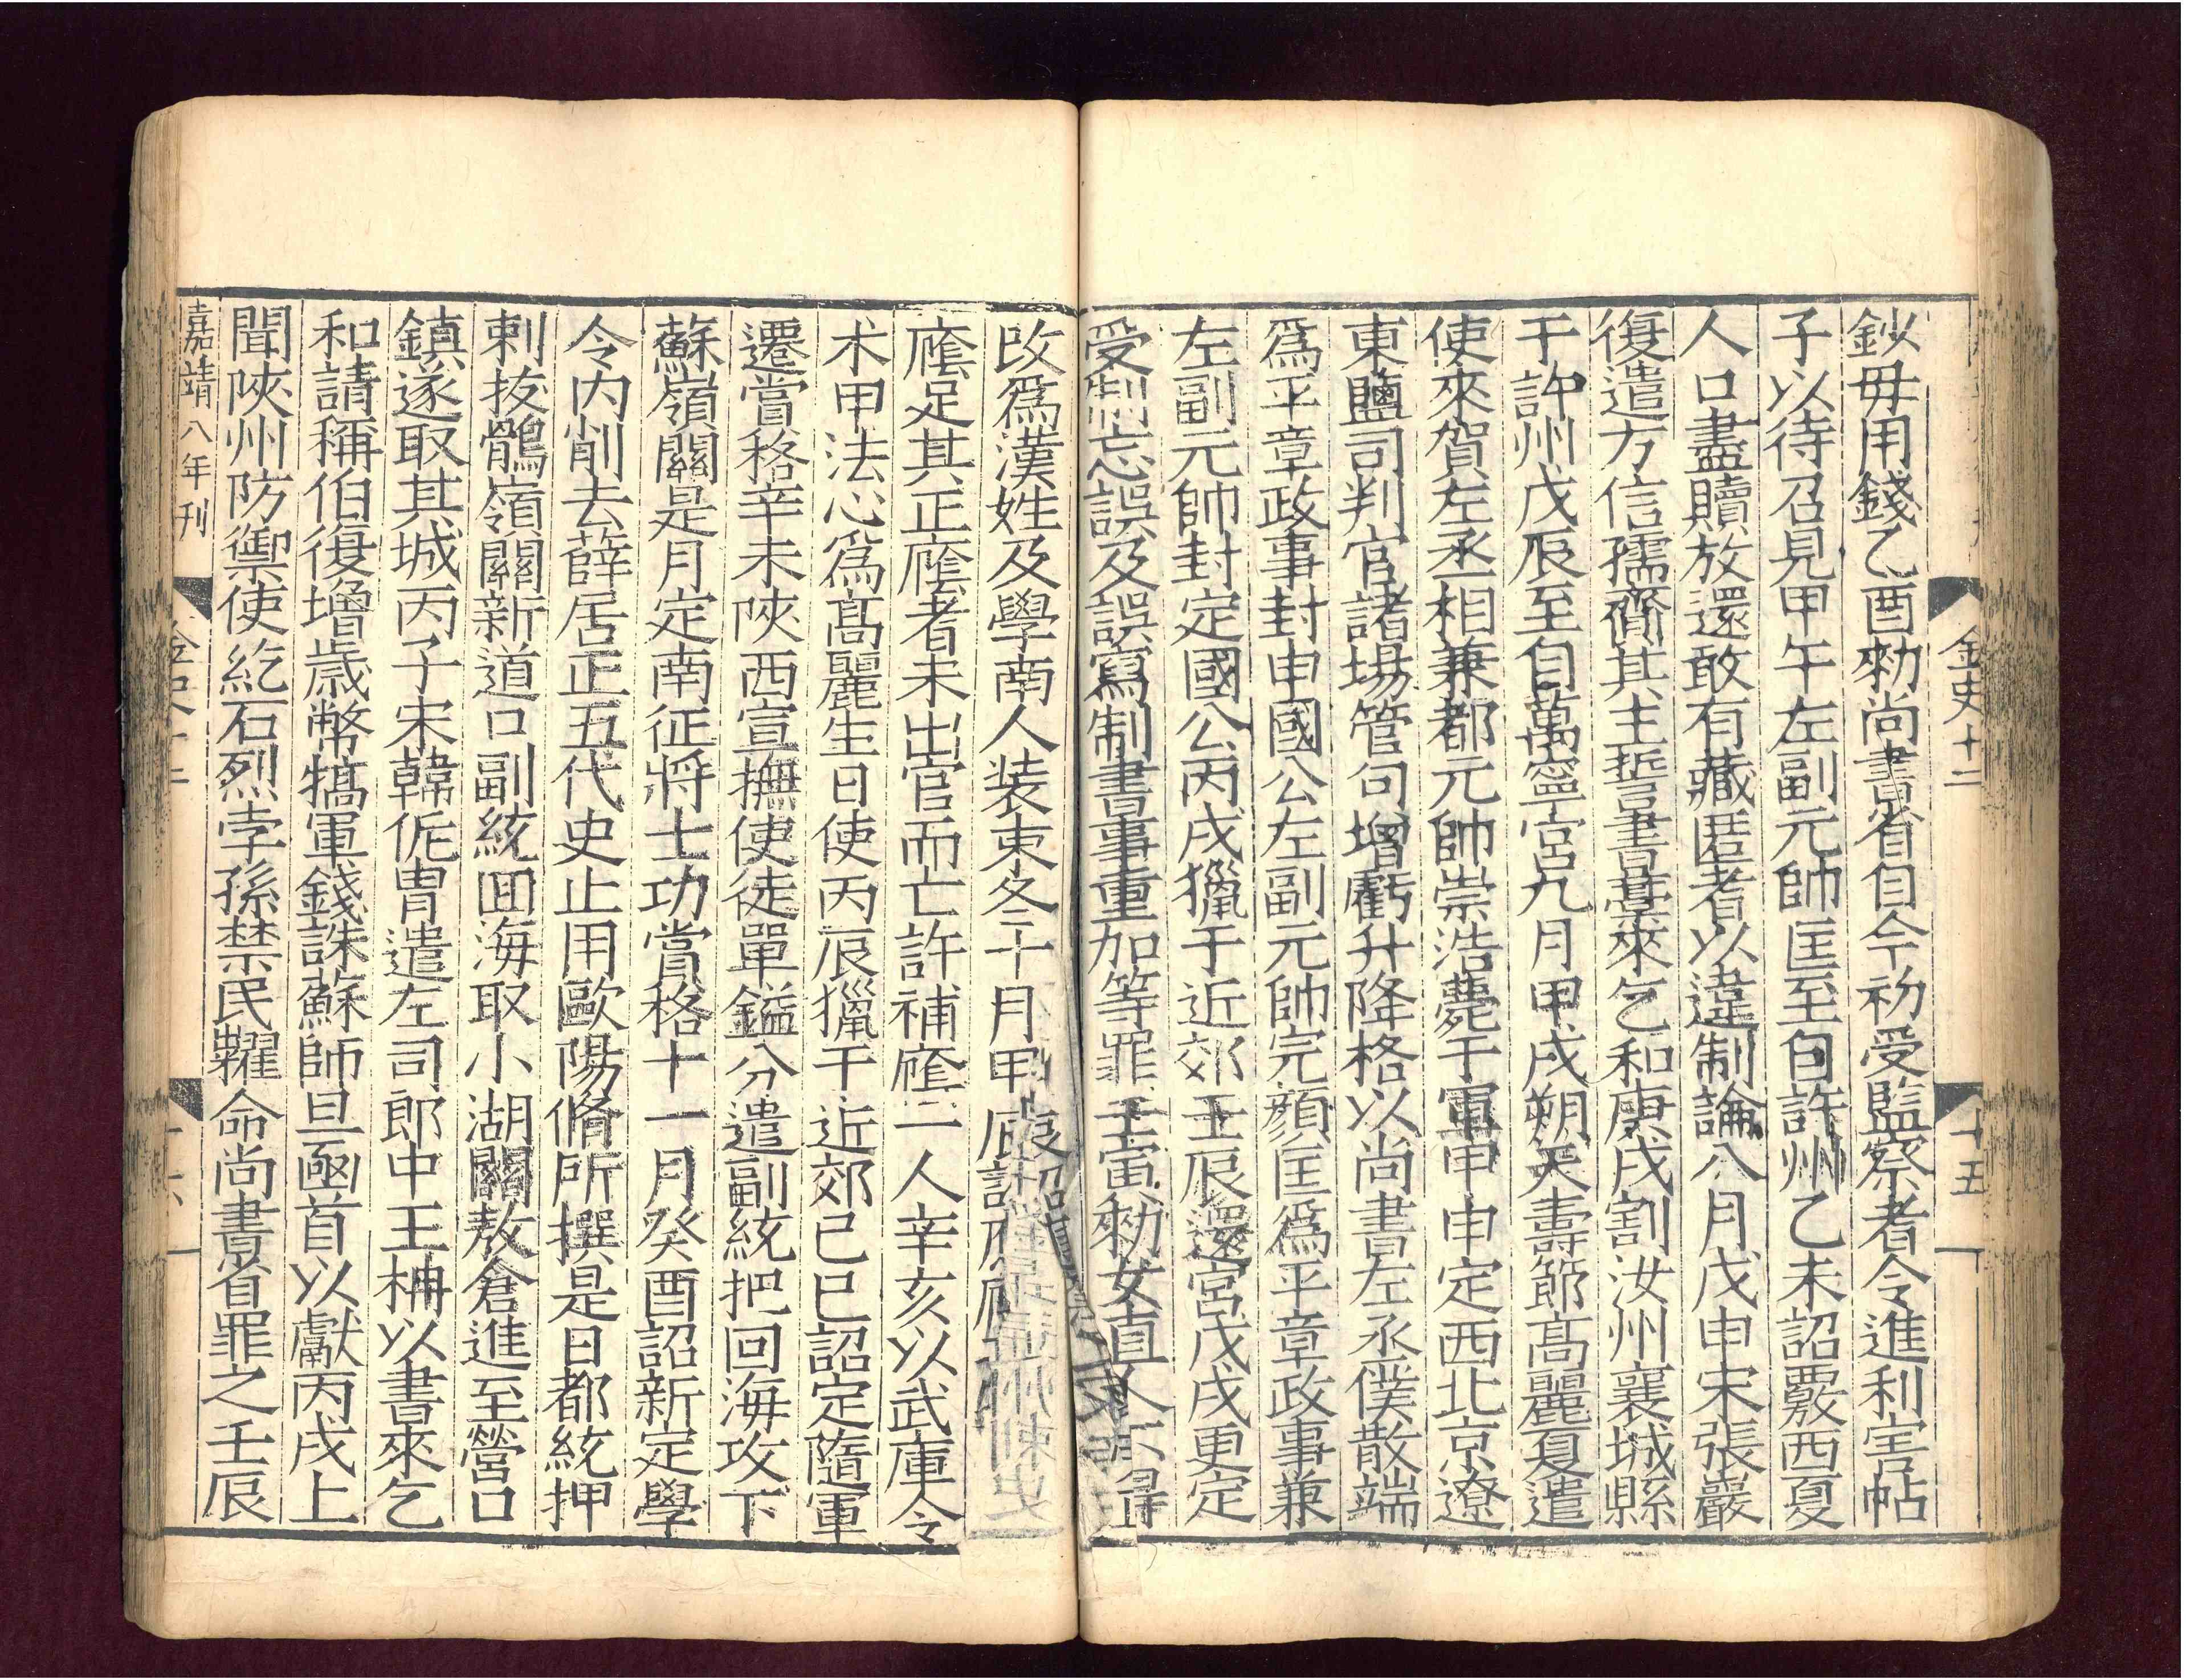 金史十二
十五
鈔毋用錢乙酉勑尚書省自今初受監察者令進利害帖
子以待召見甲午左副元帥匡至自許州乙未詔覈西夏
人口盡贖放還敢有藏匿者以違制論八月戊申宋張巖
復遣方信孺齎其主誓書藁來乞和庚戌割汝州襄城縣
于許州戊辰至自萬寧宮九月甲戌朔天壽節高麗夏遣
使來賀左丞相兼都元帥崇浩薨于軍甲申定西北京遼
東鹽司判官諸場管句增虧升降格以尚書左丞僕散端
爲平章政事封申國公左副元帥完顏匡爲平章政事兼
左副元帥封定國公丙戌獵于近郊壬辰還宮戊戌更定
受制忘誤及誤寫制書事重加等罪壬寅勑女直人不得
改爲漢姓及學南人裝束冬十月甲辰詔應廕
廕足其正廕者未出官而亡許補廕一人辛亥以武庫令
术甲法心爲髙麗生日使丙辰獵于近郊己巳詔定隨軍
遷賞格辛未陝西宣撫使徒單鎰分遣副統把回海攻下
蘇嶺關是月定南征將士功賞格十一月癸酉詔新定學
令內削去薛居正五代史止用歐陽脩所撰是日都統押
剌拔鶻嶺關新道口副統回海取小湖關敖倉進至營口
鎮遂取其城丙子宋韓侂胄遣左司郎中王柟以書來乞
和請稱伯復增歲幣犒軍錢誅蘇師旦函首以獻丙戌上
聞陝州防禦使紇石烈孛孫禁民糶命尚書省罪之壬辰
嘉靖八年刊
金史十二
十六